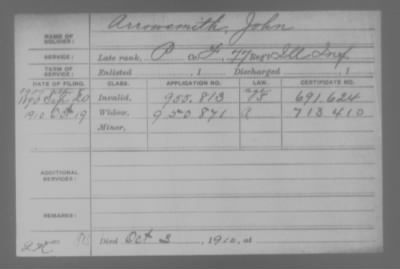 Arrowsmith, John
NAME OF SOLDIER:
SERVICE: Late rank, P Co. F, 77 Reg't Ill Inf
TERM OF SERVICE: Enlisted , 1 Discharged , 1
DATE OF FILING. CLASS. APPLICATION NO. LAW. CERTIFICATE NO.
1890 20 Invalid, 955.813 691.624
1910 Oct 19 Widow, 950.871 713.410
Minor,
ADDITIONAL SERVICES:
REMARKS:
Died Oct 3, 1910, at